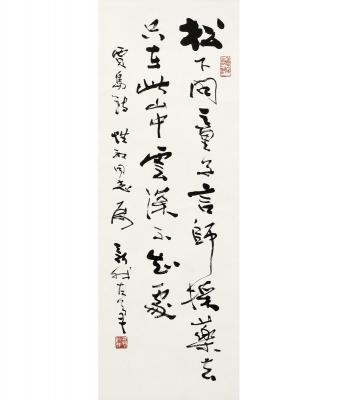 松下問童子言師採藥去
只在此山中雲深不知處
賈島詩 同志屬